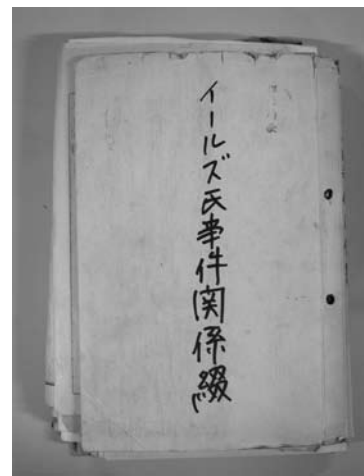 イールズ氏事件関係綴